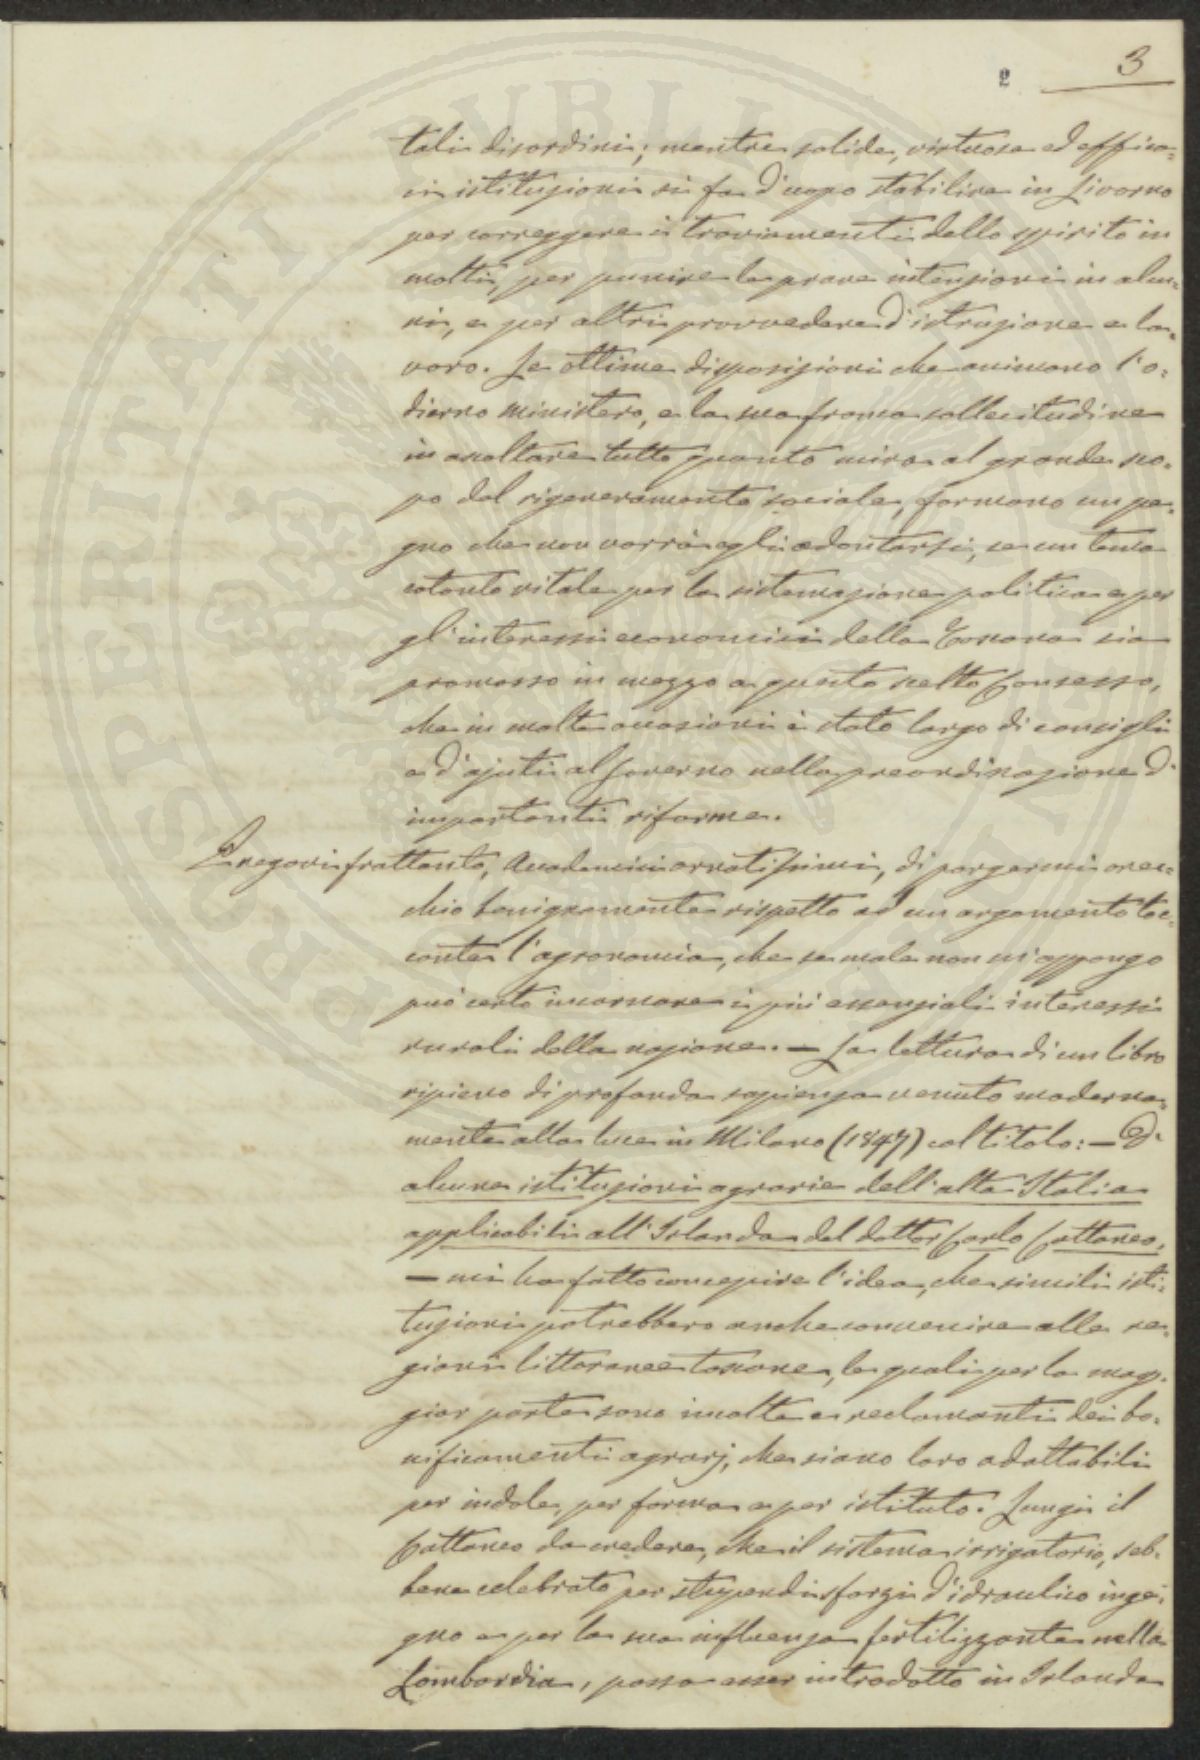 2 3
tali disordini; mentre solide, virtuose ed effica=
ci istituzioni si fa d'uopo stabilire in Livorno
per correggere i traviamenti dello spirito in
molti, per punire le prave intenzioni in alcu=
ni, e per altri provvedere d'istruzione e la=
voro. Le ottime disposizioni che animano l'o=
dierno Ministero, e la sua franca sollecitudine
in ascoltare tutto quanto mira al grande sco=
po del rigeneramento sociale, formano un pe=
gno che non vorrà egli adontarsi, se un tema
cotanto vitale per la sistemazione politica e per
gl'interessi economici della Toscana sia
promosso in mezzo a questo scelto Consesso,
che in molte occasioni è stato largo di consigli
e d'ajuti al Governo nella preordinazione d'
importanti riforme.
Pregovi frattanto, Accademici ornatissimi, di porgermi orec=
chio benignamente rispetto ad un argomento toc=
cante l'agronomia, che se male non m'appongo
può certo incarnare i più essenziali interessi
rurali della nazione. — La lettura di un libro
ripieno di profonda sapienza venuto moderna=
mente alla luce in Milano (1847) col titolo: — D'
alcune istituzioni agrarie dell'alta Italia
applicabili all'Irlanda del dottor Carlo Cattaneo,
— mi ha fatto concepire l'idea, che simili isti=
tuzioni potrebbero anche convenire alle re=
gioni littoranee toscane, le quali per la mag=
gior parte sono incolte e reclamanti dei bo=
nificamenti agrarj, che siano loro adattabili
per indole, per forma e per istituto. Lungi il
Cattaneo da credere, che il sistema irrigatorio, seb=
bene celebrato per stupendi sforzi d'idraulico inge=
gno e per la sua influenza fertilizzante nella
Lombardia, possa esser introdotto in Irlanda
PROSPERITATI PUBLICAE AUGENDAE